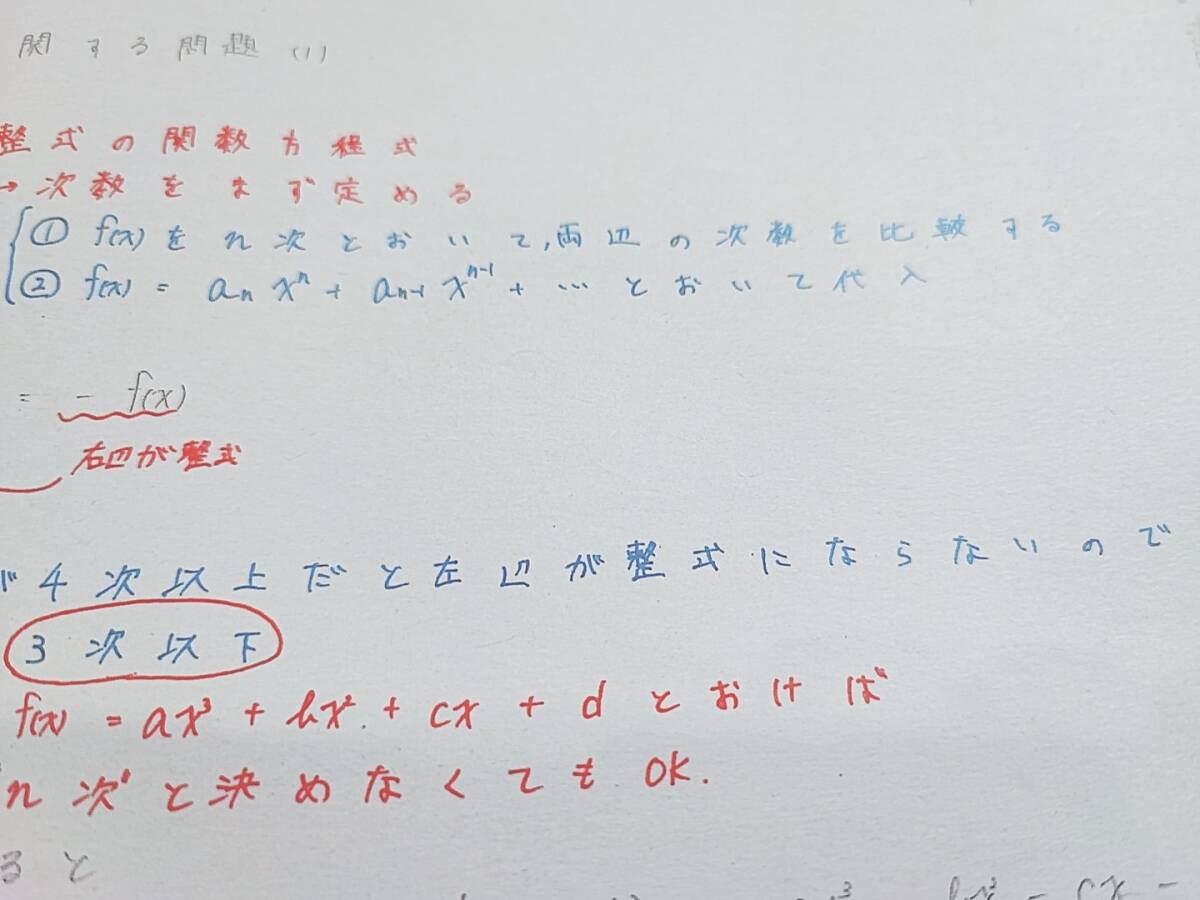 関する問題(1)
整式の関数方程式
→次数をまず定める
① f(x)をn次とおいて,両辺の次数を比較する
② f(x) = aₙxⁿ + aₙ₋₁xⁿ⁻¹ + … とおいて代入
= - f(x)
右辺が整式
が4次以上だと左辺が整式にならないので
3次以下
f(x) = ax³ + bx² + cx + d とおけば
n次"と決めなくてもOK.
ると
bx³ - cx -